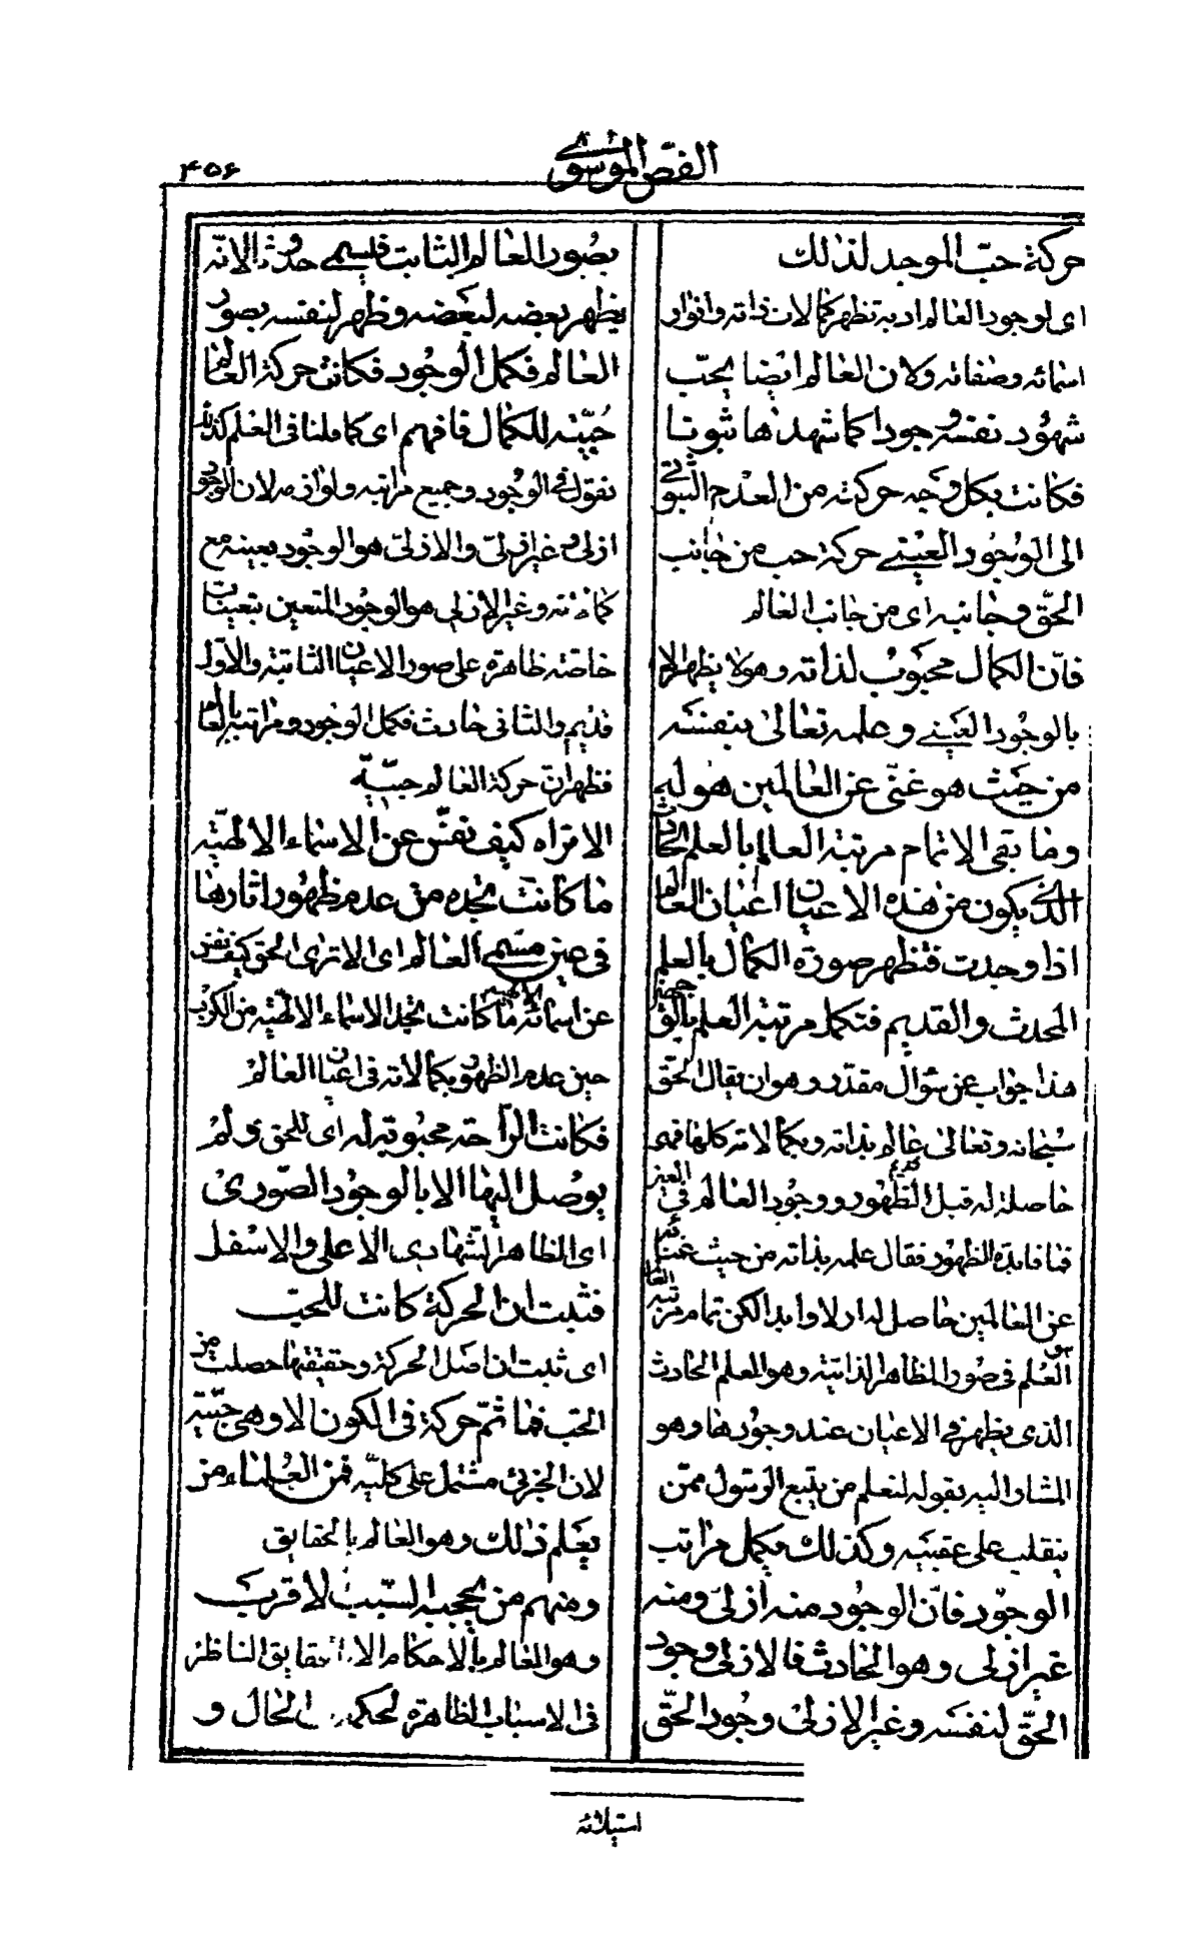 الفصّ الموسوي
۴۵۶
حركة حبّ الموجد لذلك
اى لوجود العالم اذ به تظهر كمالات ذاته وانوار
اسمائه وصفاته ولان العالم ايضا يحبّ
شهود نفسه وجودا كما شهدها ثبوتا
فكانت بكل وجه حركته من العدم الثبوتى
الى الوجود العينى حركة حب من جانب
الحقّ وجانبه اى من جانب العالم
فانّ الكمال محبوب لذاته وهو لا يظهر الا
بالوجود العينى وعلمه تعالى بنفسه
من حيث هو غنىّ عن العالمين هو له
وما بقى الا تمام مرتبة العلم بالعلم الحادث
الذى يكون من هذه الاعيان اعيان العالم
اذا وجدت فتظهر صورة الكمال بالعلم
المحدث والقديم فتكمل مرتبة العلم بالوجهين
هذا جواب عن سؤال مقدّر وهو ان يقال الحقّ
سبحانه وتعالى عالم بذاته وبكمالاته كلها فهى
حاصلة له قبل الظهور ووجود العالم فى العين
فما فائدة الظهور فقال علمه بذاته من حيث غنائه
عن العالمين حاصل له ازلا وابدا لكن تمام مرتبة
العلم فى صور المظاهر الذاتية وهو العلم الحادث
الذى يظهر فى الاعيان عند وجودها وهو
المشار اليه بقوله لنعلم من يتبع الرسول ممّن
ينقلب على عقبيه وكذلك يكمل مراتب
الوجود فانّ الوجود منه ازلىّ ومنه
غير ازلى وهو الحادث فالازلى وجود
الحقّ لنفسه وغير الازلى وجود الحقّ
بصور العالم الثابت فيسمى حدوثا لانّه
يظهر بعضه لبعضه وظهر لنفسه بصور
العالم فكمل الوجود فكانت حركة العالم
حبّيّة للكمال فافهم اى كما قلنا فى العلم كذلك
نقول فى الوجود وجميع مراتبه ولوازمه لان الوجود
ازلى وغير ازلىّ والازلىّ هو الوجود بعينه مع
كمالاته وغير الازلى هو الوجود المتعين بتعينات
خاصّة ظاهرة على صور الاعيان الثابتة والاول
قديم والثانى حادث فكمل الوجود ومراتبه بالعالم
فظهر ان حركة العالم حبيّة
الا تراه كيف نفّس عن الاسماء الالهيّة
ما كانت تجده من عدم ظهور اثارها
فى عين مسمى العالم اى الا ترى الحق كيف نفس
عن اسمائه ما كانت تجد الاسماء الالهيّة من الكرب
حين عدم الظهور بكمالاته فى اعيان العالم
فكانت الراحة محبوبة له اى للحق ولم
يوصل اليها الا بالوجود الصورى
اى الظاهر الشهادى الاعلى والاسفل
فثبت ان الحركة كانت للحبّ
اى ثبت ان اصل الحركة وحقيقتها حصلت من
الحب فما ثمّ حركة فى الكون الا وهى حبّيّة
لان الجزئى مشتمل على كليّه فمن العلماء من
يعلم ذلك وهو العالم بالحقايق
ومنهم من يحجبه السبب الاقرب
وهو العالم بالاحكام لا الحقايق الناظر
فى الاسباب الظاهرة لحكمه فى الحال و
استيلائه